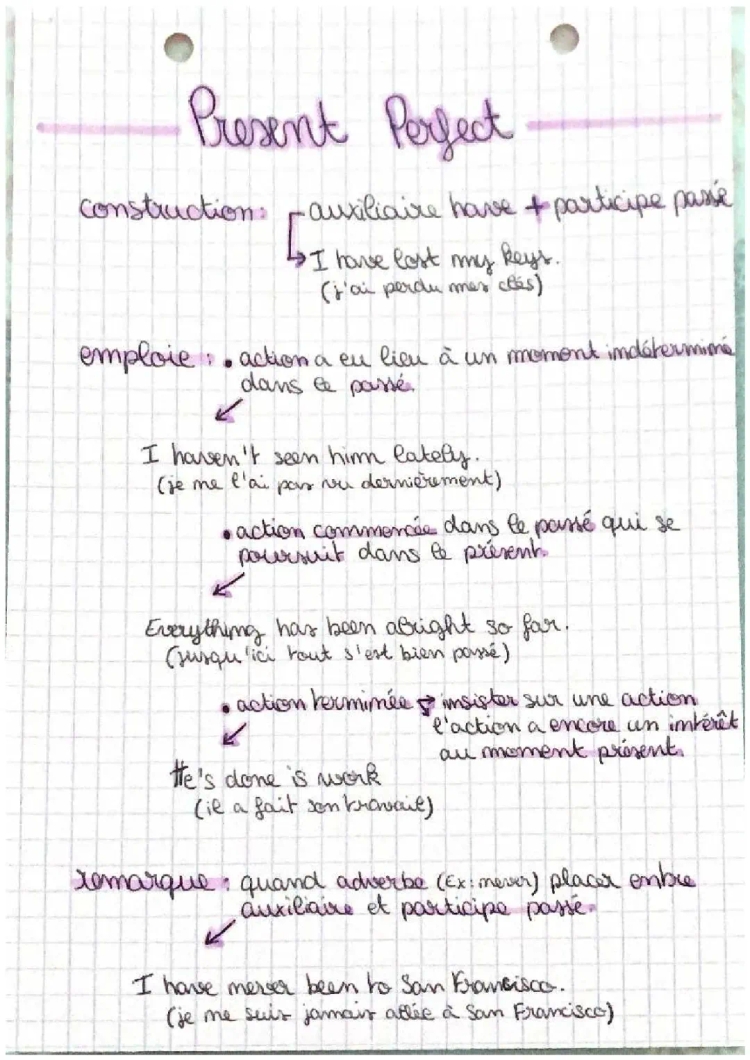 Present Perfect
construction: auxiliaire have + participe passé
I have lost my keys.
(j'ai perdu mes clés)
emploie : • action a eu lieu à un moment indéterminé
dans le passé.
I haven't seen him lately.
(je ne l'ai pas vu dernièrement)
• action commencée dans le passé qui se
poursuit dans le présent.
Everything has been alright so far.
(jusqu'ici tout s'est bien passé)
• action terminée → insister sur une action
l'action a encore un intérêt
au moment présent.
He's done is work
(il a fait son travail)
remarque : quand adverbe (Ex: never) placer entre
auxiliaire et participe passé.
I have never been to San Francisco.
(je ne suis jamais allée à San Francisco)